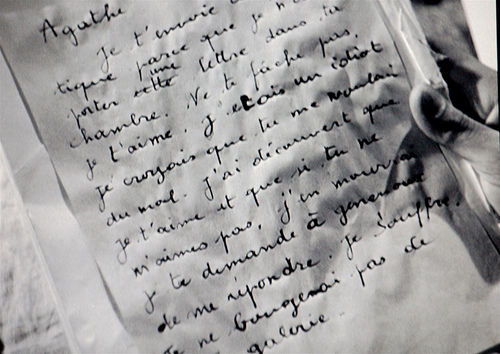 Agathe
Je t'envoie
tique parce que je n'
porter une cette lettre dans ta
chambre. Ne te fâche pas.
je t'aime. J'étais un idiot
je croyais que tu me voulais
du mal. J'ai découvert que
je t'aime et que si tu ne
m'aimes pas, j'en mourrai
je te demande à genoux
de me répondre. Je souffre.
Je ne bougerai pas de
galerie.